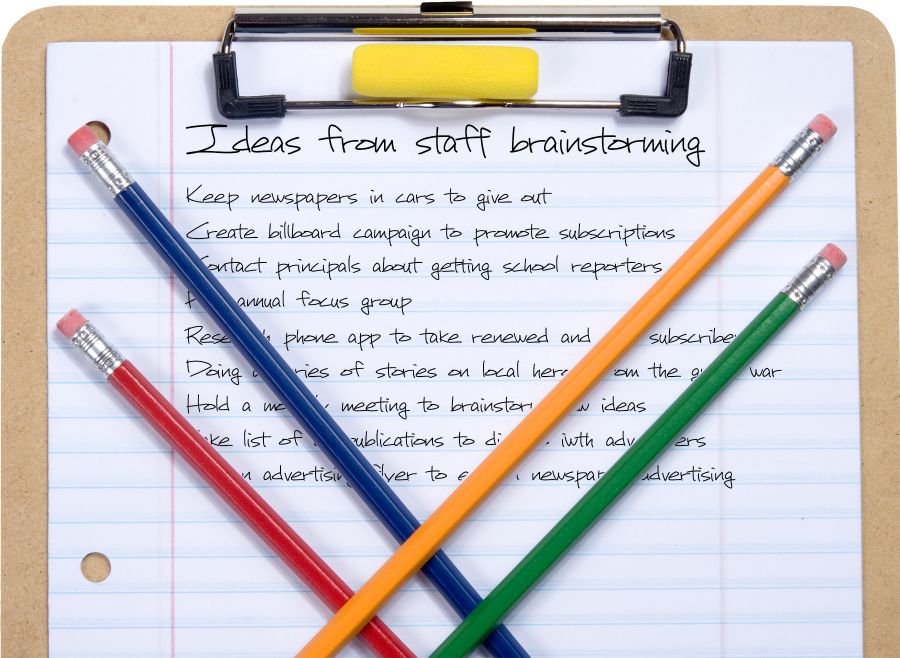 Ideas from staff brainstorming
Keep newspapers in cars to give out
Create billboard campaign to promote subscriptions
Contact principals about getting school reporters
annual focus group
Research phone app to take renewed and
Doing a series of stories on local heroes from the war
Hold a meeting to brainstorm new ideas
list of publications to iwth advertisers
advertising flyer to newspaper advertising